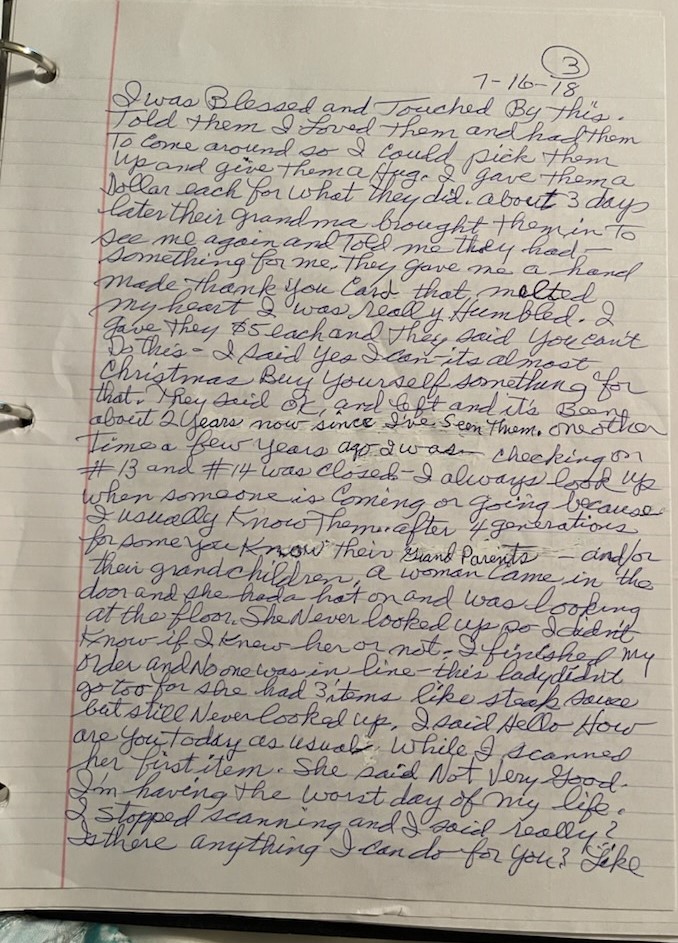 3
7-16-18
I was Blessed and Touched By this.
Told them I Loved them and had them
To come around so I could pick them
up and give them a Hug. I gave them a
Dollar each for what they did. about 3 days
later their grandma brought them in To
see me again and Told me they had -
something for me. They gave me a hand
made thank you Card that melted
my heart I was really Humbled. I
gave they $5 each and they said you can't
Do this - I said yes I can - its almost
Christmas Buy yourself something for
that. They said OK, and left and it's Been
about 2 years now since I've seen them. one other
Time a few years ago I was - checking on
#13 and #14 was closed - I always look up
when someone is Coming or going because
I usually Know Them. after 4 generations
for some you Know their Grand Parents - and/or
their grandchildren, a woman came in the
door and she had a hat on and was looking
at the floor. She Never looked up so I didn't
Know if I Knew her or not - I finished my
order and No one was in line - this lady didn't
go too far she had 3 items like steak sauce
but still Never looked up. I said Hello How
are you Today as usual. While I scanned
her first item. She said Not Very Good.
I'm having the worst day of my life.
I stopped scanning and I said really?
Is there anything I can do for you? Like